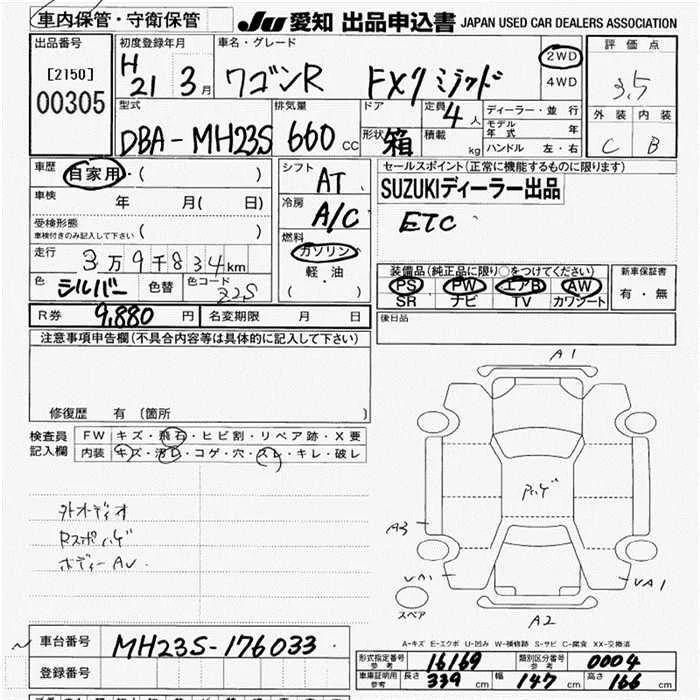 車内保管・守衛保管
JU 愛知 出品申込書 JAPAN USED CAR DEALERS ASSOCIATION
出品番号 初度登録年月 車名・グレード 2WD 4WD 評価点
[2150] 00305 H 21 3月 ワゴンR FXリミテッド 3.5
型式 排気量 ドア 定員 4人 ディーラー・並行 外装 内装
DBA-MH23S 660cc 形状 箱 積載 kg モデル年式 年 ハンドル 左・右 C B
車歴 自家用・( ) シフト AT セールスポイント(正常に機能するものに限ります)
車検 年 月( 日) 冷房 A/C SUZUKIディーラー出品
受検形態 車検付きのみ記入して下さい ( ) ETC
走行 3万9千834km 燃料 ガソリン 軽・油 ・( ) 装備品(純正品に限り○をつけてください) 新車保証書
色 シルバー 色替 色コード Z2S PS PW エアB AW 有・無
SR ナビ TV カワシート
R券 9,880円 名変期限 月 日 後日品
注意事項申告欄(不具合内容等は具体的に記入して下さい)
A1
修復歴 有 〔箇所 〕
検査員記入欄 FW キズ・飛石・ヒビ割・リペア跡・X要
内装 キズ・汚レ・コゲ・穴・スレ・キレ・破レ
外オーディオ
A3
ボディーAU
UA1 UA1
スペア A2
A-キズ E-エクボ U-凹み W-補修跡 S-サビ C-腐食 XX-交換済
車台番号 MH23S-176033
登録番号
形式指定番号 参考 16169 類別区分番号 参考 0004
車庫証明用 参考 長さ 339cm 幅 147cm 高さ 166cm